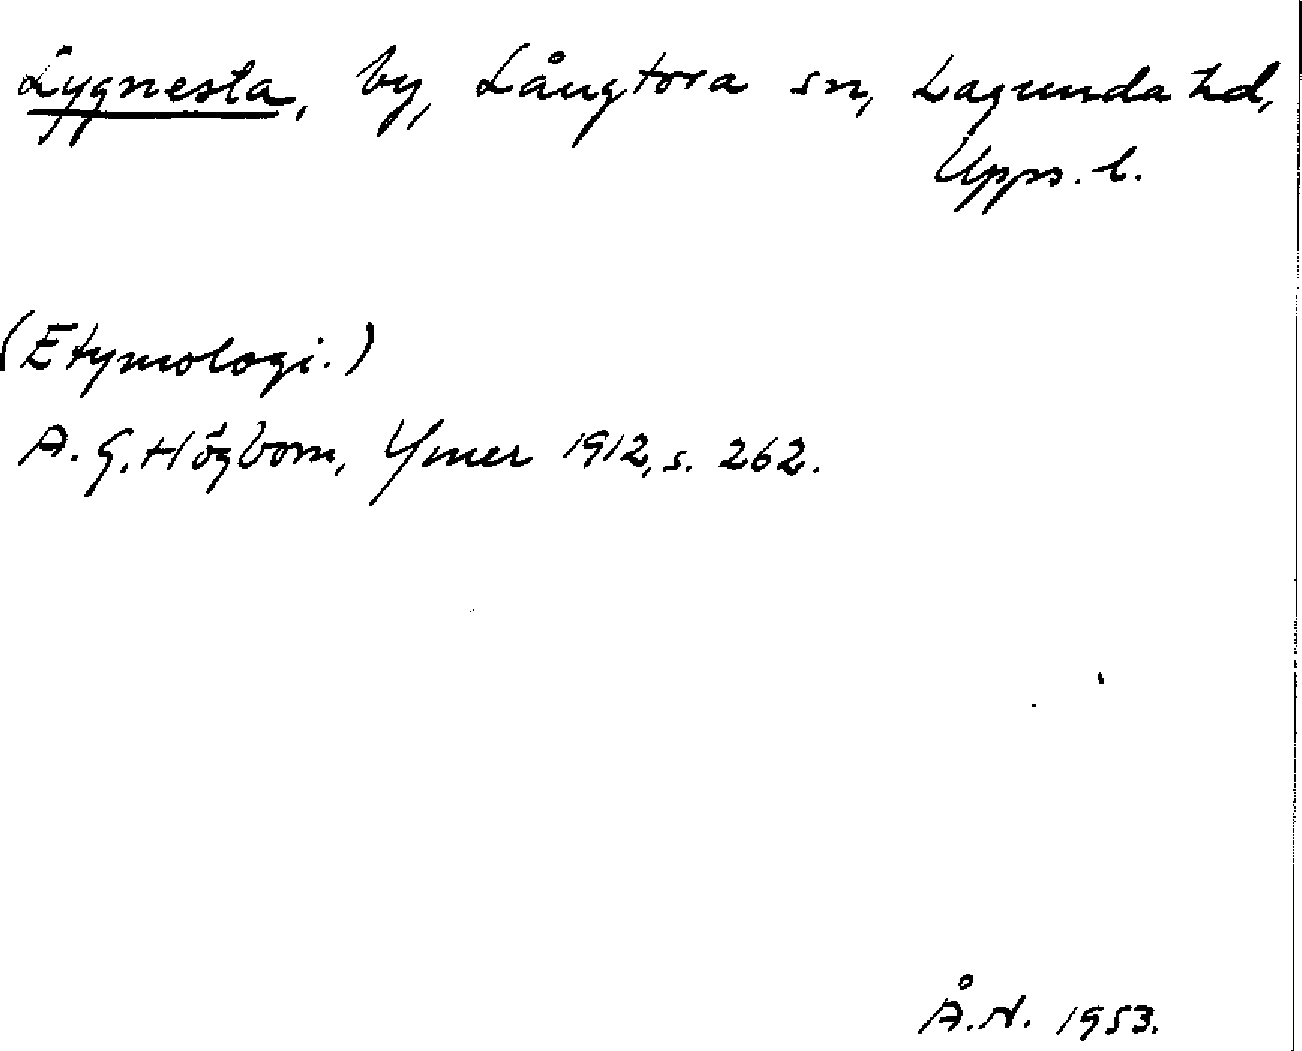 Lygnesta, by, Långtora sn, Lagunda hd,
Upps. l.
(Etymologi.)
A. G. Högbom, Ymer 1912, s. 262.
Å. N. 1953.